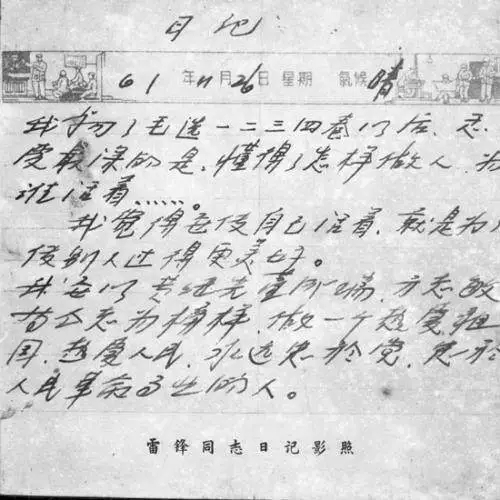 日记
61 年 11 月 26 日 星期 氣候 晴
我学习了毛选一二三四卷以后，感
受最深的是，懂得了怎样做人，为
谁活着……。
我觉得要使自己活着，就是为了
使别人过得更美好。
我要以黄继光董存瑞，方志敏
等同志为榜样，做一个热爱祖
国，热爱人民，永远忠於党，忠於
人民革命事业的人。
雷锋同志日记影照